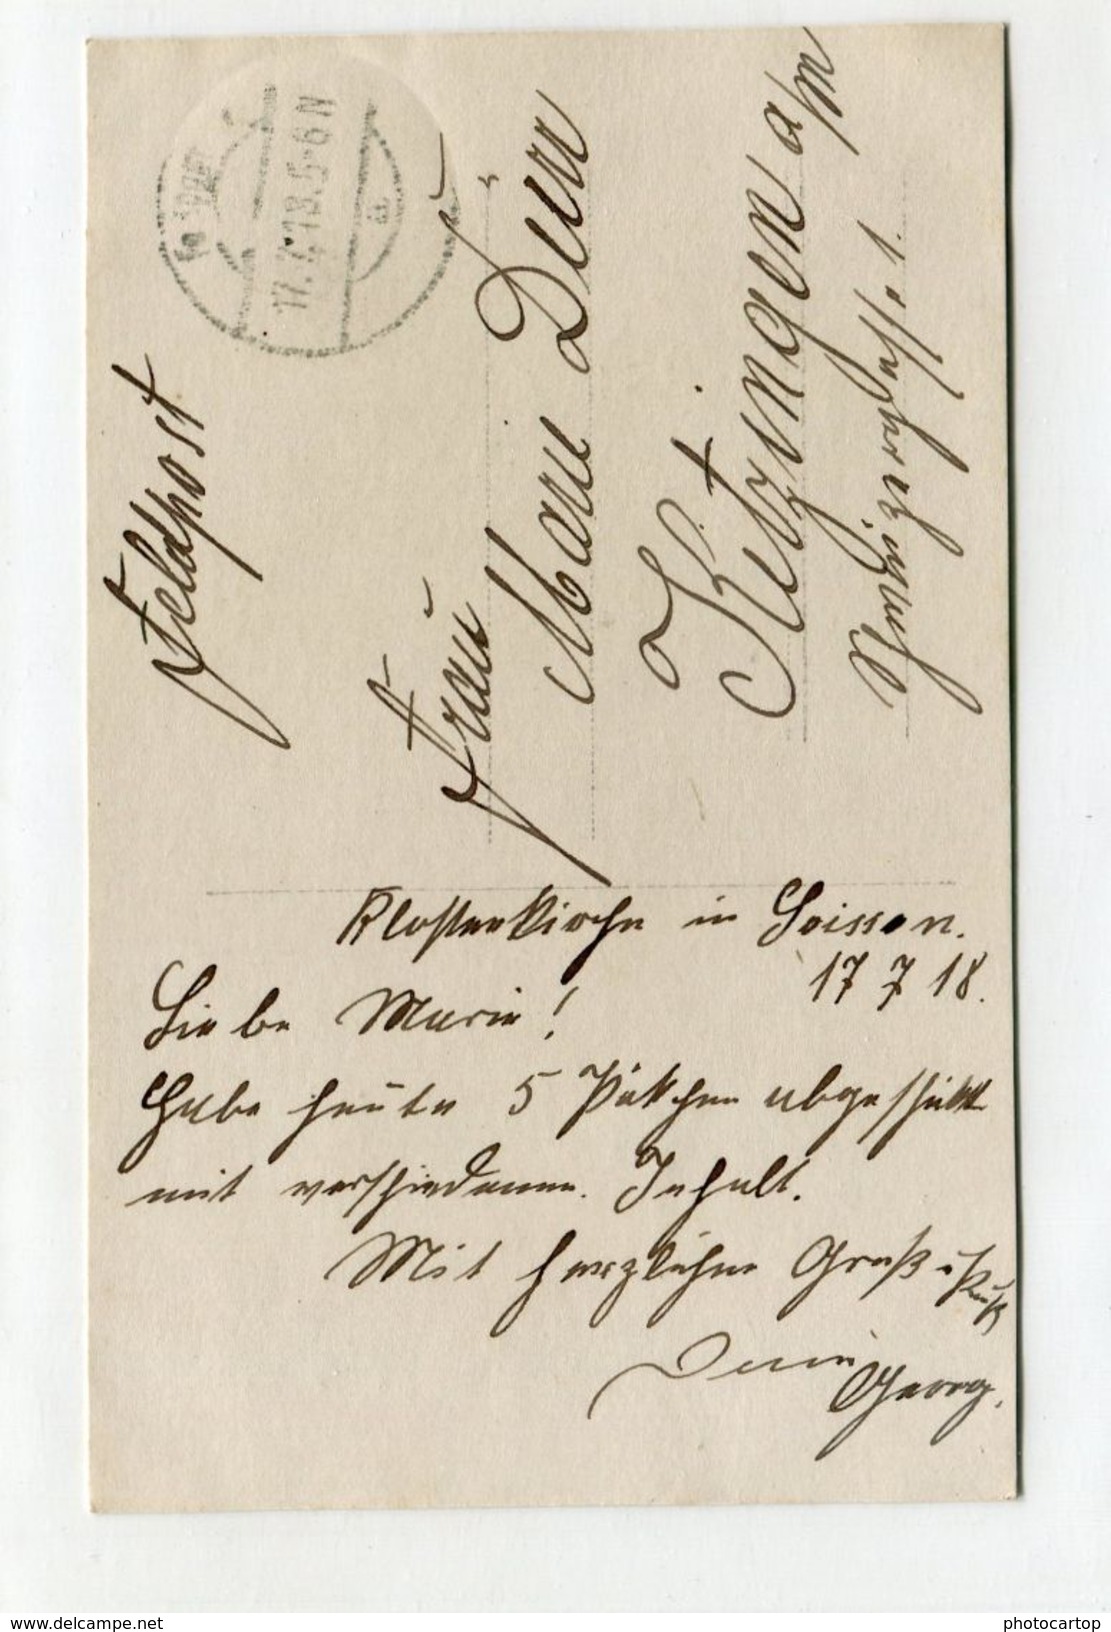 Feldpost
Frau
Marie Dürr
Kitzingen a/M
1.
FELDPOST
17.7.18.5-6N
a
Klosterkirche in Soisson.
17 7 18.
Liebe Marie!
Habe heute 5 Päckchen abgeschickt
mit verschiedenem Inhalt.
Mit herzlichem Gruß u. Kuß
Dein
Georg.
www.delcampe.net
photocartop